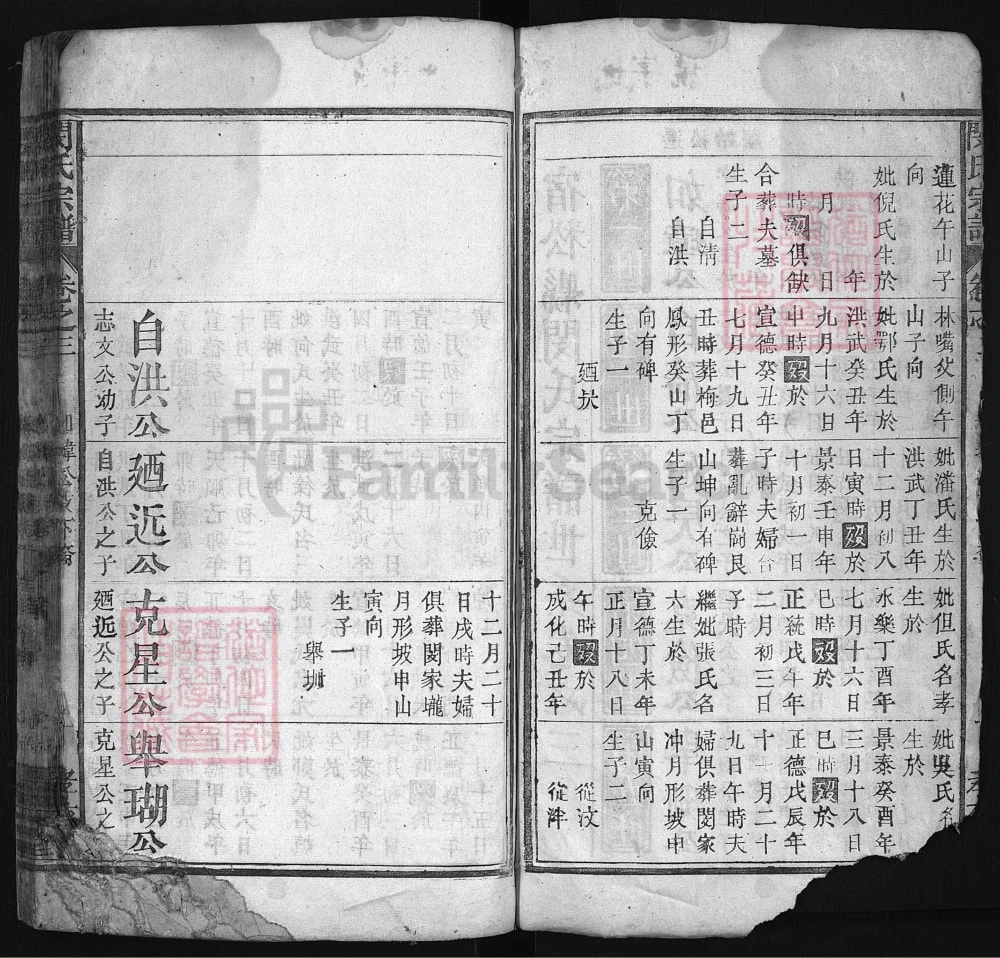 閔氏宗譜
蓮花午山子
向
妣倪氏生於
年
月 日
時歿俱缺
合葬夫墓
生子二
自清
自洪
林嘴攵側午
山子向
妣鄂氏生於
洪武癸丑年
九月十六日
出時歿於
宣德癸丑年
七月十九日
丑時葬梅邑
鳳形癸山丁
向有碑
生子一
廼扶
妣潘氏生於
洪武丁丑年
十二月初八
日寅時歿於
景泰壬申年
十月初一日
子時夫婦合
葬亂辭崗艮
山坤向有碑
生子一
克儉
妣但氏名孝
生於
永樂丁酉年
七月十六日
巳時歿於
正統戊午年
二月初三日
子時
繼妣張氏名
六生於
宣德丁未年
正月十八日
午時歿於
成化己丑年
妣吳氏名
生於
景泰癸酉年
三月十八日
巳時歿於
正德戊辰年
十一月二十
九日午時夫
婦俱葬閔家
冲月形坡申
山寅向
生子二
從汶
從泮
自洪公
志文公幼子
廼远公
自洪公之子
十二月二十
日戌時夫婦
俱葬閔家壠
月形坡申山
寅向
生子一
舉珊
克星公
廼远公之子
舉瑚公
克星公之
閔氏宗譜
卷之三
FamilySearch